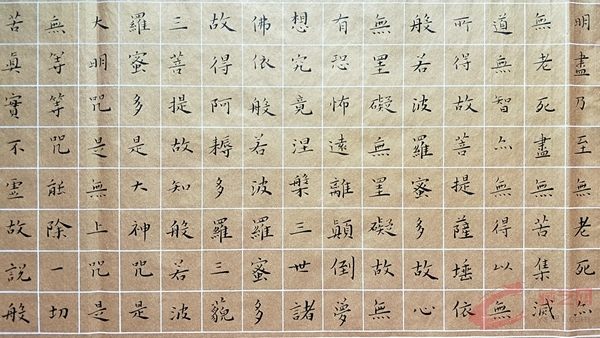 明盡乃至無老死亦
無老死盡無苦集滅
道無智亦無得以無
所得故菩提薩埵依
般若波羅蜜多故心
無罣礙無罣礙故無
有恐怖遠離顛倒夢
想究竟涅槃三世諸
佛依般若波羅蜜多
故得阿耨多羅三藐
三菩提故知般若波
羅蜜多是大神咒是
大明咒是無上咒是
無等等咒能除一切
苦眞實不虛故說般